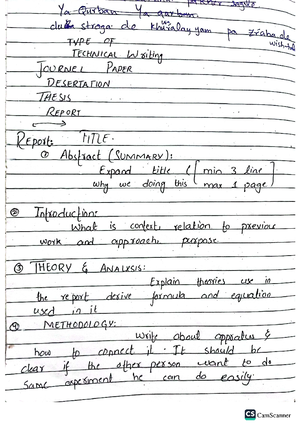 Ya Qurban Ya qurban
stroga de khumalayam pa ziaba de
TYPE OF
TECHNICAL Writing
JOURNEL PAPER
DESERTATION
THESIS
REPORT
REPORT: TITLE.
① Abstract (SUMMARY):
Expand title ( [ min 3 line
why we doing this max 1 page ]
② Introduction:
What is context, relation to previous
work and approach, purpose
③ THEORY & ANALYSIS:
Explain theories use in
the report derive formula and equation
used in it
④ METHODOLOGY:
Write about appratus &
how to connect it. It should be
clear if the other person want to do
same experiment he can do easily.
CS CamScanner